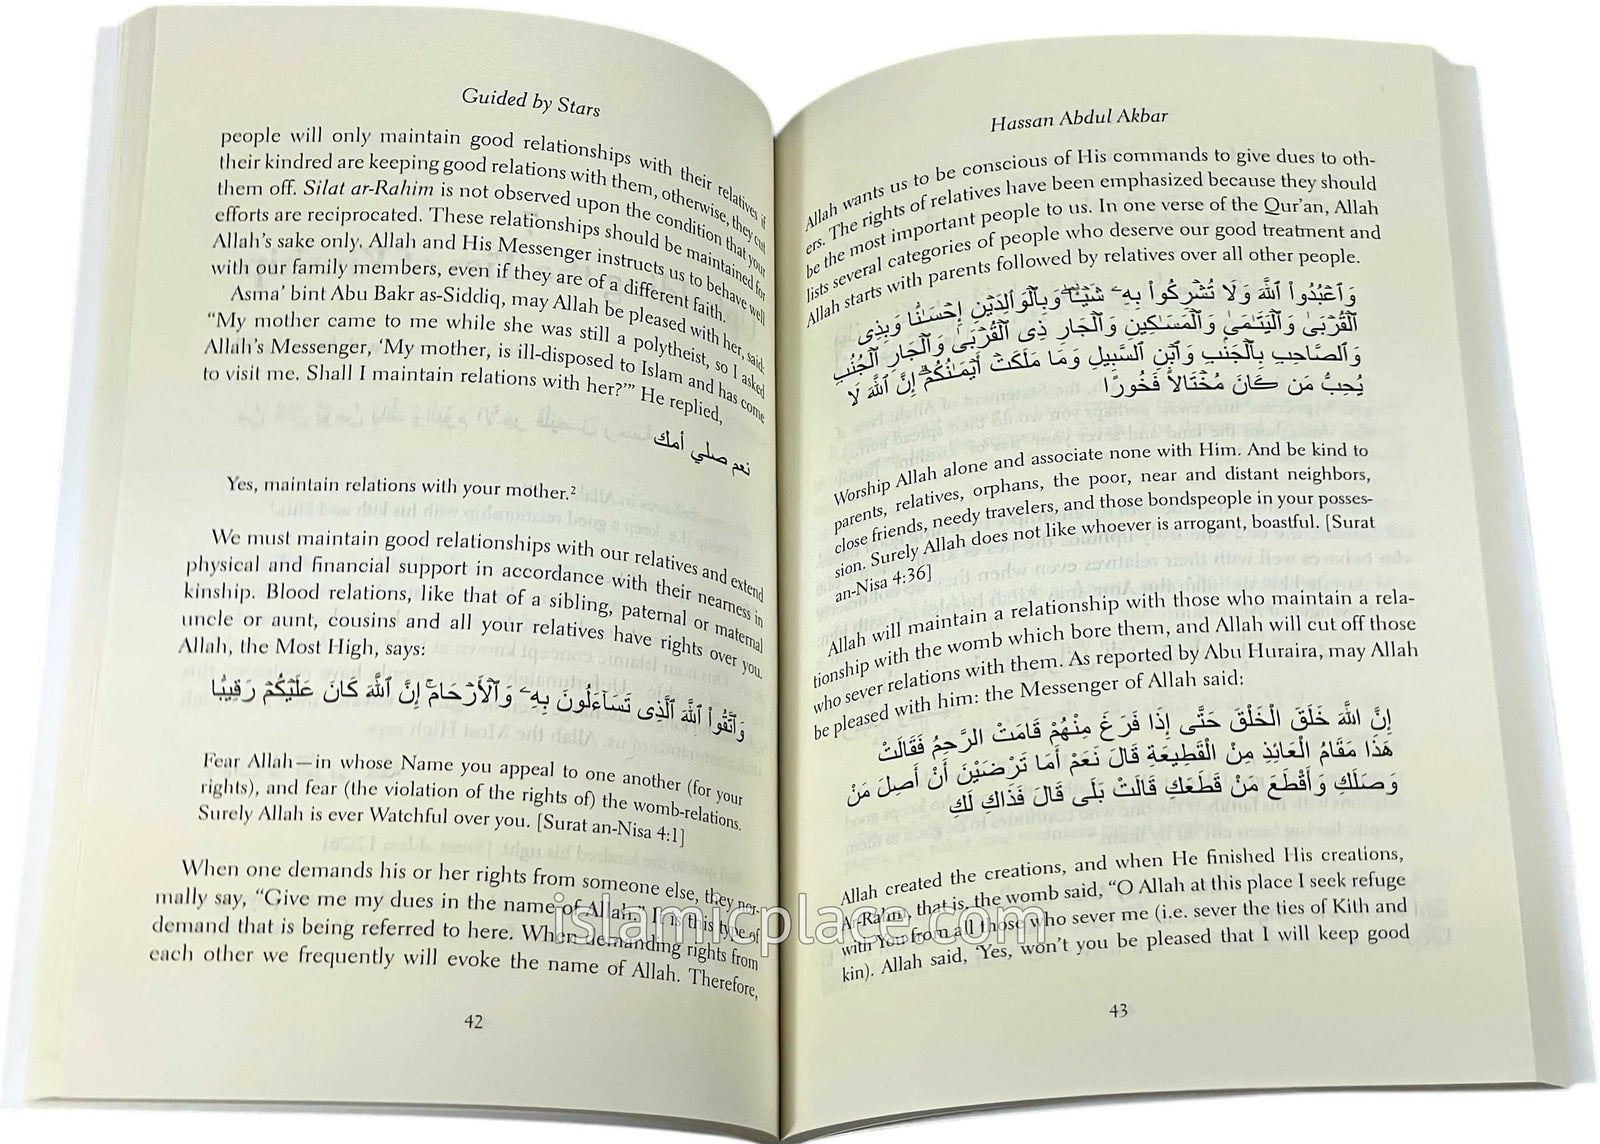 Guided by Stars
people will only maintain good relationships with their relatives if
their kindred are keeping good relations with them, otherwise, they cut
them off. Silat ar-Rahim is not observed upon the condition that your
efforts are reciprocated. These relationships should be maintained for
Allah's sake only. Allah and His Messenger instructs us to behave well
with our family members, even if they are of a different faith.
Asma' bint Abu Bakr as-Siddiq, may Allah be pleased with her, said:
“My mother came to me while she was still a polytheist, so I asked
Allah's Messenger, ‘My mother, is ill-disposed to Islam and has come
to visit me. Shall I maintain relations with her?’” He replied,
نعم صلي أمك
Yes, maintain relations with your mother.²
We must maintain good relationships with our relatives and extend
physical and financial support in accordance with their nearness in
kinship. Blood relations, like that of a sibling, paternal or maternal
uncle or aunt, cousins and all your relatives have rights over you.
Allah, the Most High, says:
وَٱتَّقُوا۟ ٱللَّهَ ٱلَّذِى تَسَآءَلُونَ بِهِۦ وَٱلْأَرْحَامَ ۚ إِنَّ ٱللَّهَ كَانَ عَلَيْكُمْ رَقِيبًا
Fear Allah—in whose Name you appeal to one another (for your
rights), and fear (the violation of the rights of) the womb-relations.
Surely Allah is ever Watchful over you. [Surat an-Nisa 4:1]
When one demands his or her rights from someone else, they nor-
mally say, “Give me my dues in the name of Allah.” It is this type of
demand that is being referred to here. When demanding rights from
each other we frequently will evoke the name of Allah. Therefore,
42
Hassan Abdul Akbar
Allah wants us to be conscious of His commands to give dues to oth-
ers. The rights of relatives have been emphasized because they should
be the most important people to us. In one verse of the Qur'an, Allah
lists several categories of people who deserve our good treatment and
Allah starts with parents followed by relatives over all other people.
وَٱعْبُدُوا۟ ٱللَّهَ وَلَا تُشْرِكُوا۟ بِهِۦ شَيْـًٔا ۖ وَبِٱلْوَٰلِدَيْنِ إِحْسَٰنًا وَبِذِى
ٱلْقُرْبَىٰ وَٱلْيَتَٰمَىٰ وَٱلْمَسَٰكِينِ وَٱلْجَارِ ذِى ٱلْقُرْبَىٰ وَٱلْجَارِ ٱلْجُنُبِ
وَٱلصَّاحِبِ بِٱلْجَنۢبِ وَٱبْنِ ٱلسَّبِيلِ وَمَا مَلَكَتْ أَيْمَٰنُكُمْ ۗ إِنَّ ٱللَّهَ لَا
يُحِبُّ مَن كَانَ مُخْتَالًا فَخُورًا
Worship Allah alone and associate none with Him. And be kind to
parents, relatives, orphans, the poor, near and distant neighbors,
close friends, needy travelers, and those bondspeople in your posses-
sion. Surely Allah does not like whoever is arrogant, boastful. [Surat
an-Nisa 4:36]
Allah will maintain a relationship with those who maintain a rela-
tionship with the womb which bore them, and Allah will cut off those
who sever relations with them. As reported by Abu Huraira, may Allah
be pleased with him: the Messenger of Allah said:
إِنَّ اللَّهَ خَلَقَ الْخَلْقَ حَتَّى إِذَا فَرَغَ مِنْهُمْ قَامَتْ الرَّحِمُ فَقَالَتْ
هَذَا مَقَامُ الْعَائِذِ مِنْ الْقَطِيعَةِ قَالَ نَعَمْ أَمَا تَرْضَيْنَ أَنْ أَصِلَ مَنْ
وَصَلَكِ وَأَقْطَعَ مَنْ قَطَعَكِ قَالَتْ بَلَى قَالَ فَذَاكِ لَكِ
Allah created the creations, and when He finished His creations,
Ar-Rahm, that is, the womb said, “O Allah at this place I seek refuge
with You from all those who sever me (i.e. sever the ties of Kith and
kin). Allah said, ‘Yes, won't you be pleased that I will keep good
43
islamicplace.com